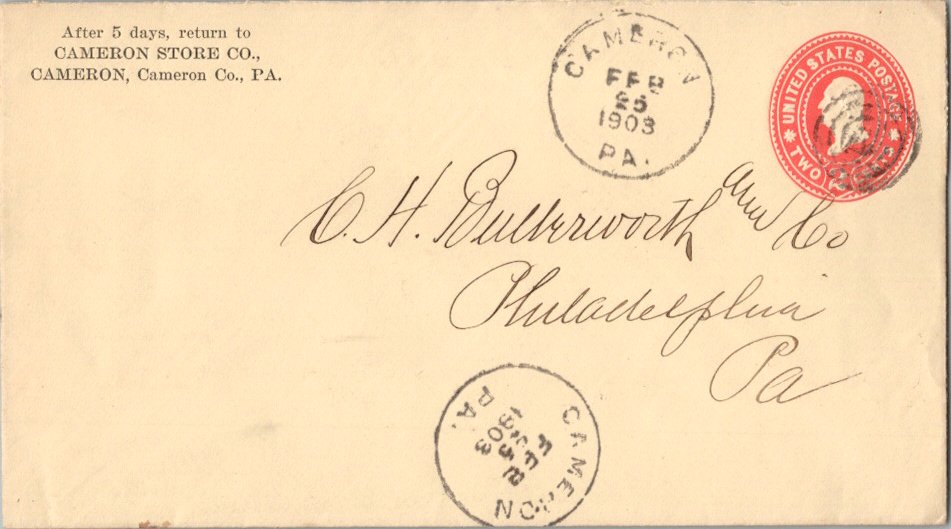 After 5 days, return to
CAMERON STORE CO.,
CAMERON, Cameron Co., PA.
CAMERON
FEB
25
1903
PA.
UNITED STATES POSTAGE
TWO CENTS
C. H. Butterworth and Co
Philadelphia
Pa
CAMERON
FEB
25
1903
PA.